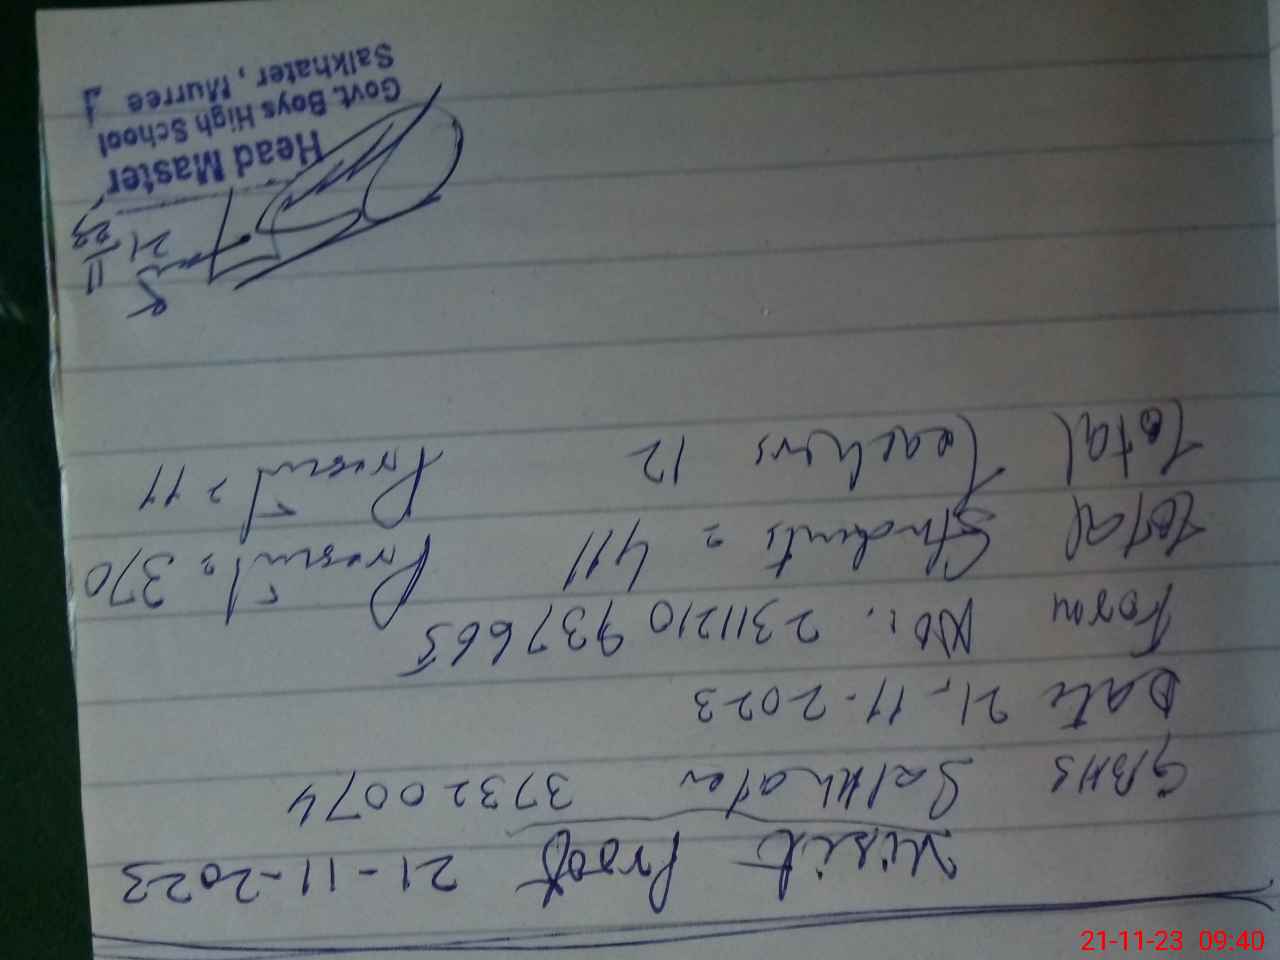 Visit Proof 21-11-2023
GBHS Salkhater 37320074
Date 21-11-2023
Form No: 2311210937665
Total Students = 411 Present = 370
Total Teachers 12 Present = 11
21
11
23
Head Master
Govt. Boys High School
Salkhater, Murree
21-11-23 09:40